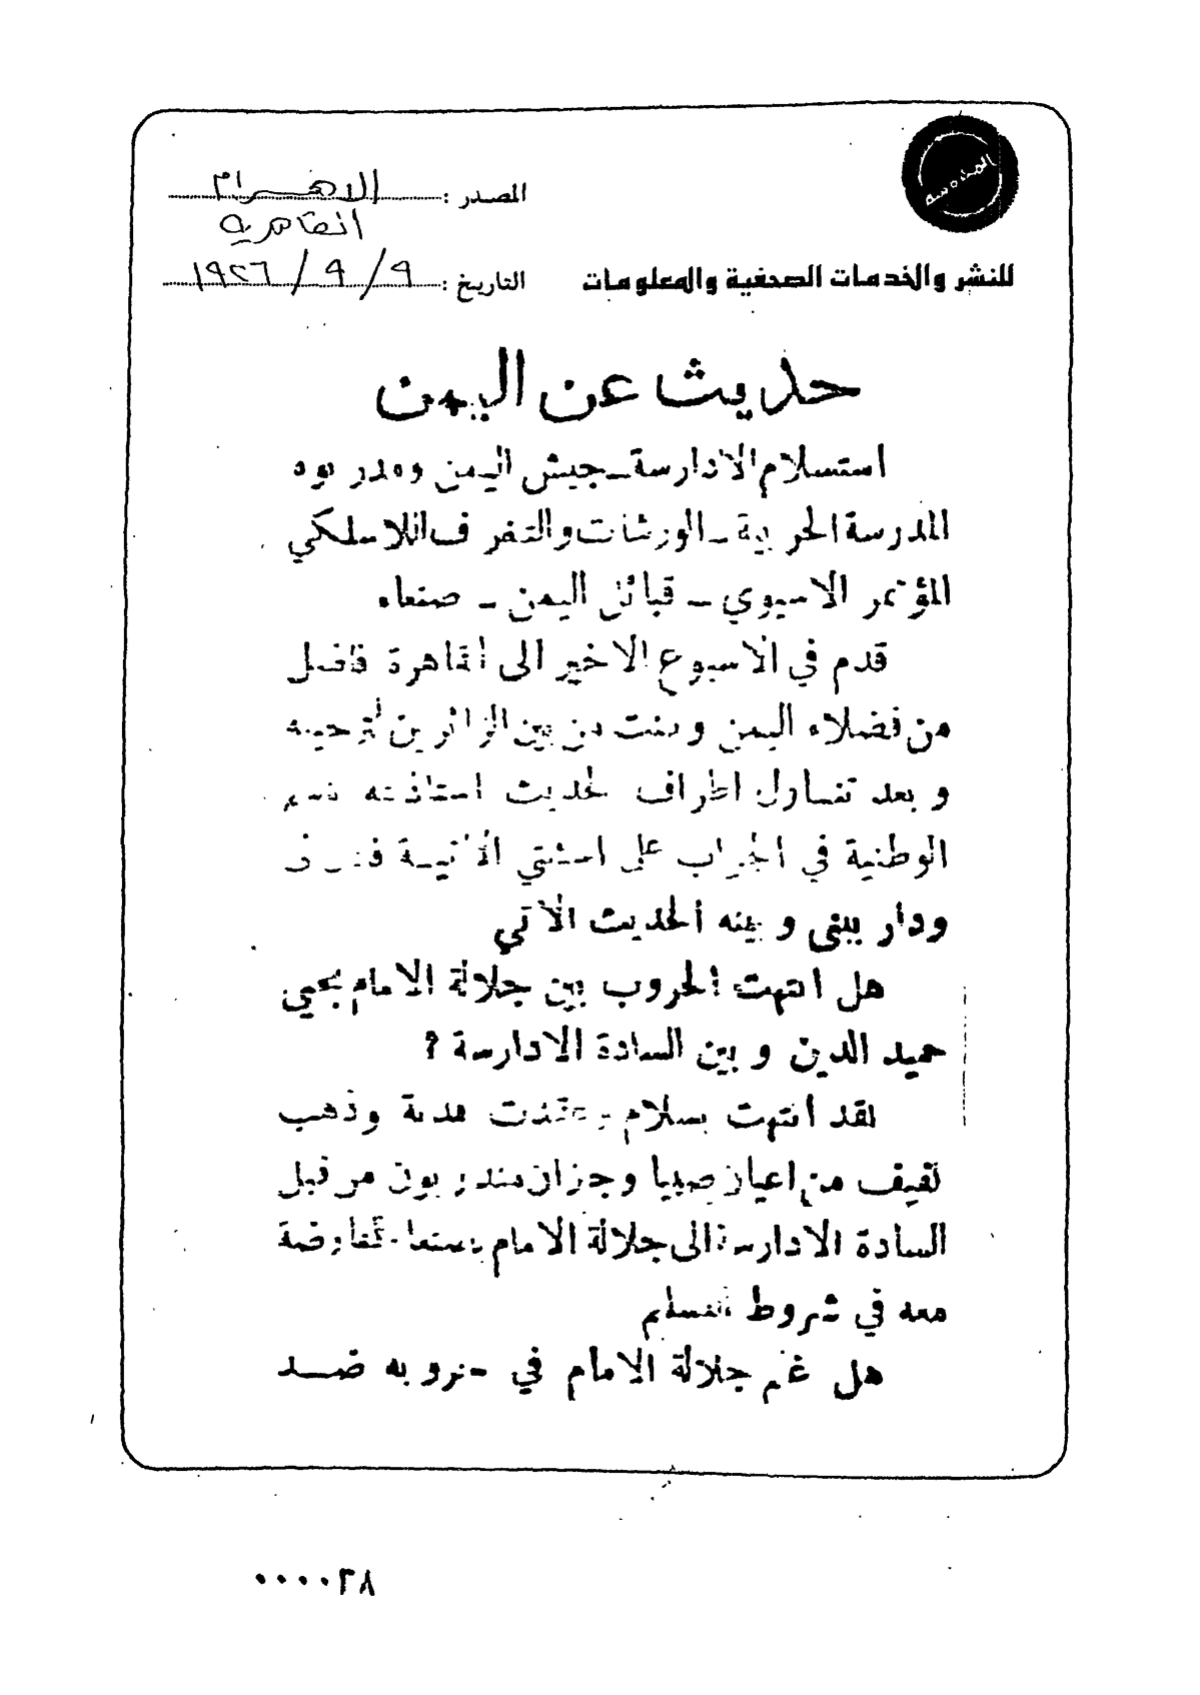 المصدر : الاهرام
القاهرية
للنشر والخدمات الصحفية والمعلومات
التاريخ : ٩ / ٩ / ١٩٢٦
حديث عن اليمن
استسلام الادارسة ــ جيش اليمن ومدربوه
المدرسة الحربية ــ الورشات والتلغراف اللاسلكي
المؤتمر الاسيوي ــ قبائل اليمن ــ صنعاء
قدم في الاسبوع الاخير الى القاهرة فاضل
من فضلاء اليمن وكنت من بين الزائرين لترحيبه
وبعد تناول اطراف الحديث استاذنته
الوطنية في الجواب على اسئلتي الآتية
ودار بيني وبينه الحديث الآتي
هل انتهت الحروب بين جلالة الامام يحيى
حميد الدين وبين السادة الادارسة ؟
لقد انتهت بسلام وعقدت هدنة وذهب
لفيف من اعيان صبيا وجزان مندوبون من قبل
السادة الادارسة الى جلالة الامام بصنعاء لمفاوضة
معه في شروط التسليم
هل غنم جلالة الامام في حروبه ضد
٠٠٠٠٣٨